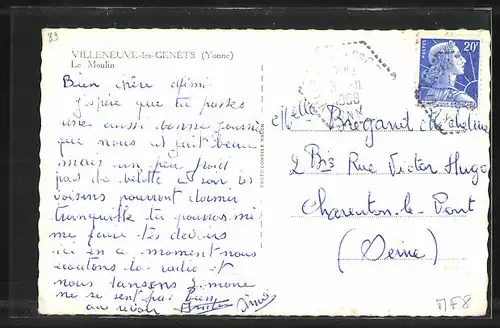 89
VILLENEUVE-les-GENÊTS (Yonne)
Le Moulin
Bien chère Mimi
J'espère que tu passes
une aussi bonne journée
que nous il fait beau
mais un peu froid
pas de belotte ce soir les
voisins pourront dormir
tranquille tu pourras mi
me faire tes devoirs
ici en ce moment nous
écoutons la radio et
nous dansons Simone
ne se sent pas bien
au revoir
POSTES
20F
1958
Melle Brégand Micheline
2 Bis Rue Victor Hugo
Charenton-le-Pont
(Seine)
MF8